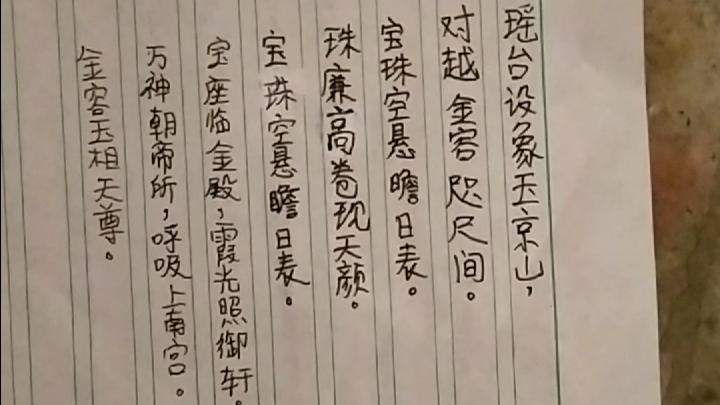 瑶台设象玉京山，
对越金容咫尺间。
宝珠空悬瞻日表。
珠廉高卷现天颜。
宝珠空悬瞻日表。
宝座临金殿，霞光照御轩。
万神朝帝所，呼吸上南宫。
金容玉相天尊。